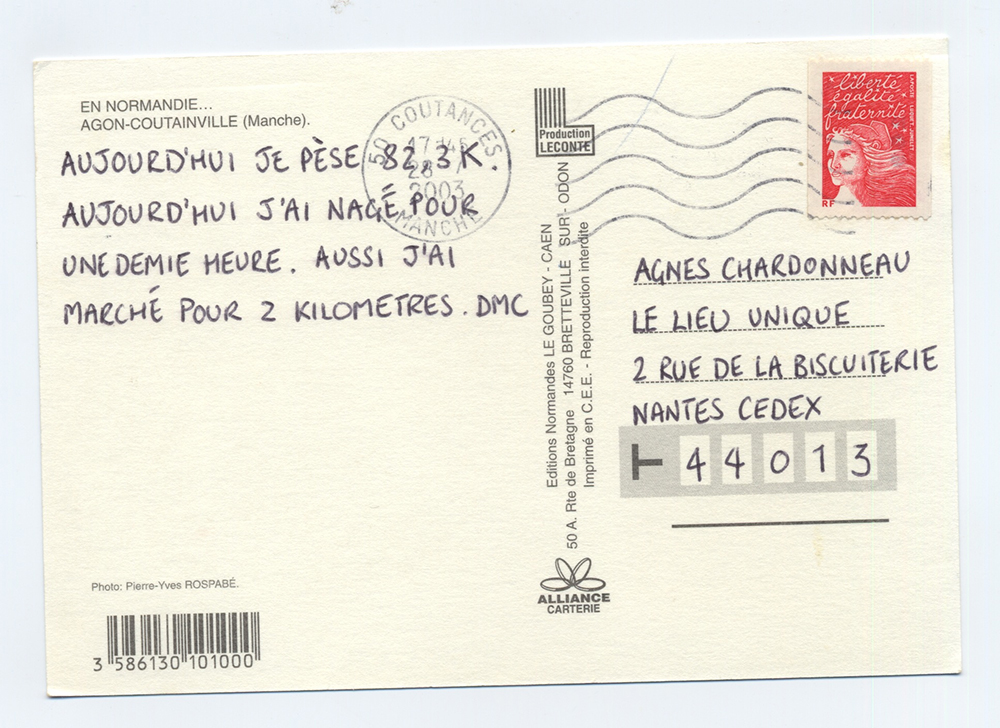 EN NORMANDIE...
AGON-COUTAINVILLE (Manche).
AUJOURD'HUI JE PÈSE 82,3 K.
AUJOURD'HUI J'AI NAGÉ POUR
UNE DEMIE HEURE. AUSSI J'AI
MARCHÉ POUR 2 KILOMETRES. DMC
Photo: Pierre-Yves ROSPABÉ.
3 586130 101000
50 COUTANCES
2003
MANCHE
Production
LECONTE
Editions Normandes LE GOUBEY - CAEN
50 A. Rte de Bretagne 14760 BRETTEVILLE SUR - ODON
Imprimé en C.E.E. - Reproduction interdite
ALLIANCE
CARTERIE
liberté
égalité
fraternité
RF
AGNES CHARDONNEAU
LE LIEU UNIQUE
2 RUE DE LA BISCUITERIE
NANTES CEDEX
T 44013